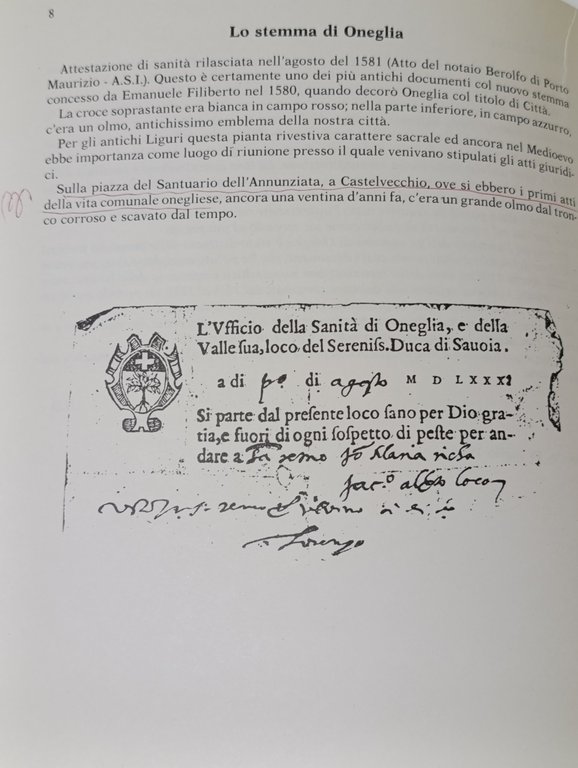 8
Lo stemma di Oneglia
Attestazione di sanità rilasciata nell'agosto del 1581 (Atto del notaio Berolfo di Porto
Maurizio - A.S.I.). Questo è certamente uno dei più antichi documenti col nuovo stemma
concesso da Emanuele Filiberto nel 1580, quando decorò Oneglia col titolo di Città.
La croce soprastante era bianca in campo rosso; nella parte inferiore, in campo azzurro,
c'era un olmo, antichissimo emblema della nostra città.
Per gli antichi Liguri questa pianta rivestiva carattere sacrale ed ancora nel Medioevo
ebbe importanza come luogo di riunione presso il quale venivano stipulati gli atti giuridi-
ci.
Sulla piazza del Santuario dell'Annunziata, a Castelvecchio, ove si ebbero i primi atti
della vita comunale onegliese, ancora una ventina d'anni fa, c'era un grande olmo dal tron-
co corroso e scavato dal tempo.
L'Vfficio della Sanità di Oneglia, e della
Valle ſua, loco del Sereniſs. Duca di Sauoia.
a di pº di agosto M D LXXXI
Si parte dal preſente loco ſano per Dio gra-
tia, e fuori di ogni ſoſpetto di peſte per an-
dare a